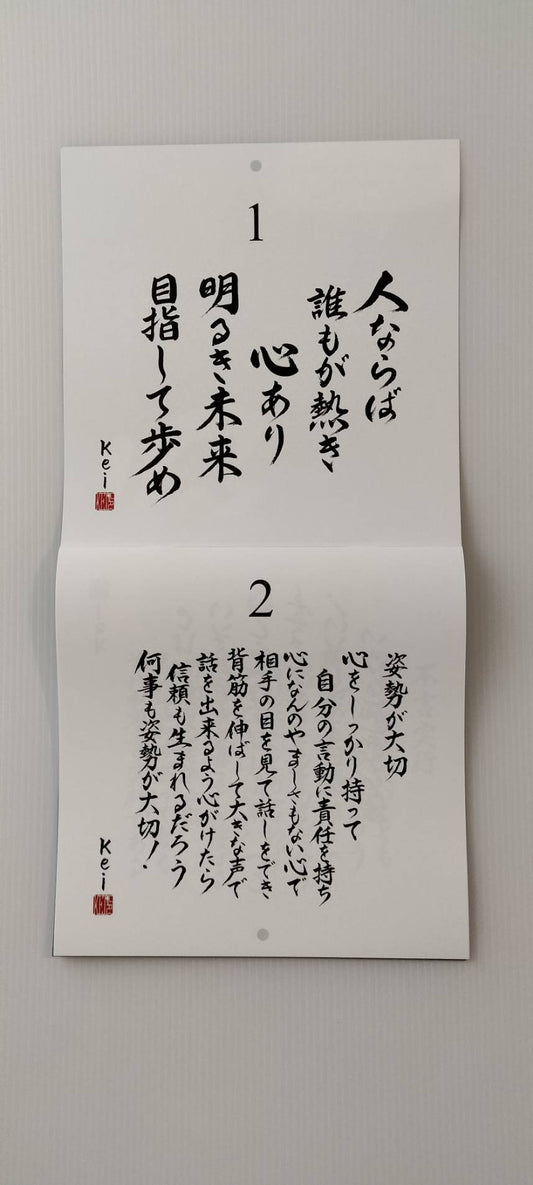 1
人ならば
誰もが熱き
心あり
明るき未来
目指して歩め
Kei
2
姿勢が大切
心をしっかり持って
自分の言動に責任を持ち
心になんのやましさもない心で
相手の目を見て話しをでき
背筋を伸ばして大きな声で
話を出来るよう心がけたら
信頼も生まれるだろう
何事も姿勢が大切!
Kei